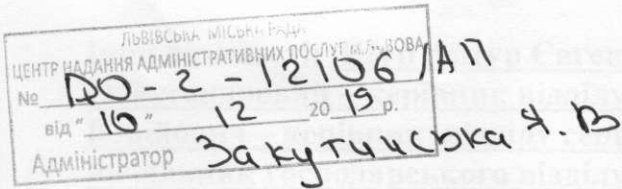 ЛЬВІВСЬКА МІСЬКА РАДА
ЦЕНТР НАДАННЯ АДМІНІСТРАТИВНИХ ПОСЛУГ М.ЛЬВОВА
№ ДО-2-12106/АП
від "10" 12 2019 р.
Адміністратор Закутинська Я. В